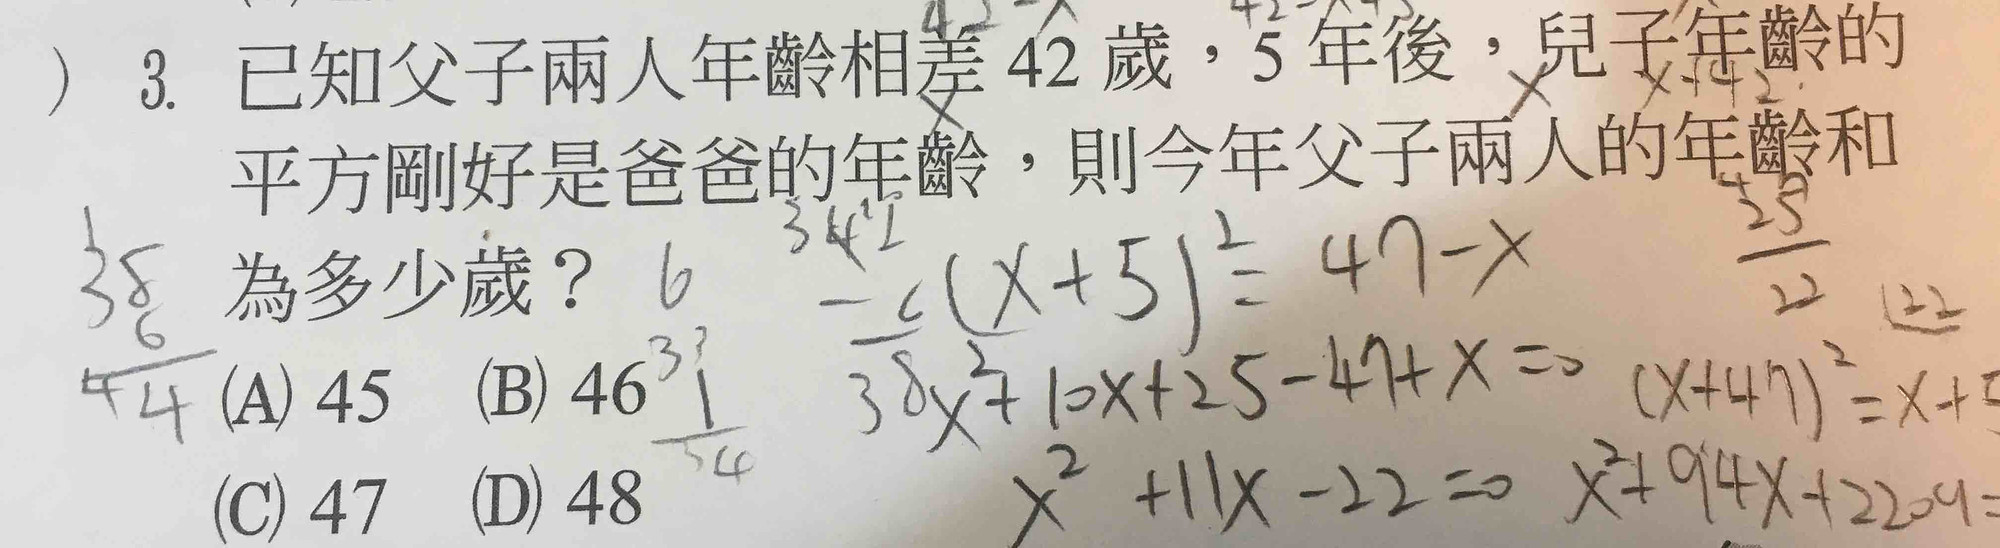 42-x
) 3. 已知父子兩人年齡相差 42 歲，5 年後，兒子年齡的
x x x+42
平方剛好是爸爸的年齡，則今年父子兩人的年齡和
為多少歲？ 6
(x+5)² = 47-x
25
22
22
38
6
44
(A) 45 (B) 46
38
x²+10x+25-47+x=0
(x+47)²=x+5
(C) 47 (D) 48
x² +11x-22=0
x²+94x+2209=